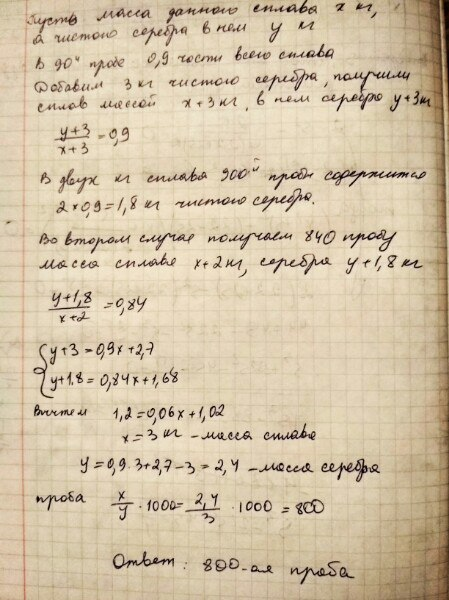 Пусть масса данного сплава x кг,
а чистого серебра в нем y кг
В 90ой пробе 0,9 части всего сплава
Добавим 3 кг чистого серебра, получили
сплав массой x+3 кг, в нем серебра y+3 кг
y+3/x+3 = 0,9
В двух кг сплава 900ой пробы содержится
2×0,9=1,8 кг чистого серебра.
Во втором случае получаем 840 пробу
масса сплава x+2 кг, серебра y+1,8 кг
y+1,8/x+2 = 0,84
{y+3 = 0,9x+2,7
y+1.8 = 0,84x+1,68
Вычтем 1,2=0,06x+1,02
x=3 кг - масса сплава
y=0,9·3+2,7-3=2,4 - масса серебра
проба x/y · 1000 = 2,4/3 · 1000 = 800
Ответ: 800-ая проба